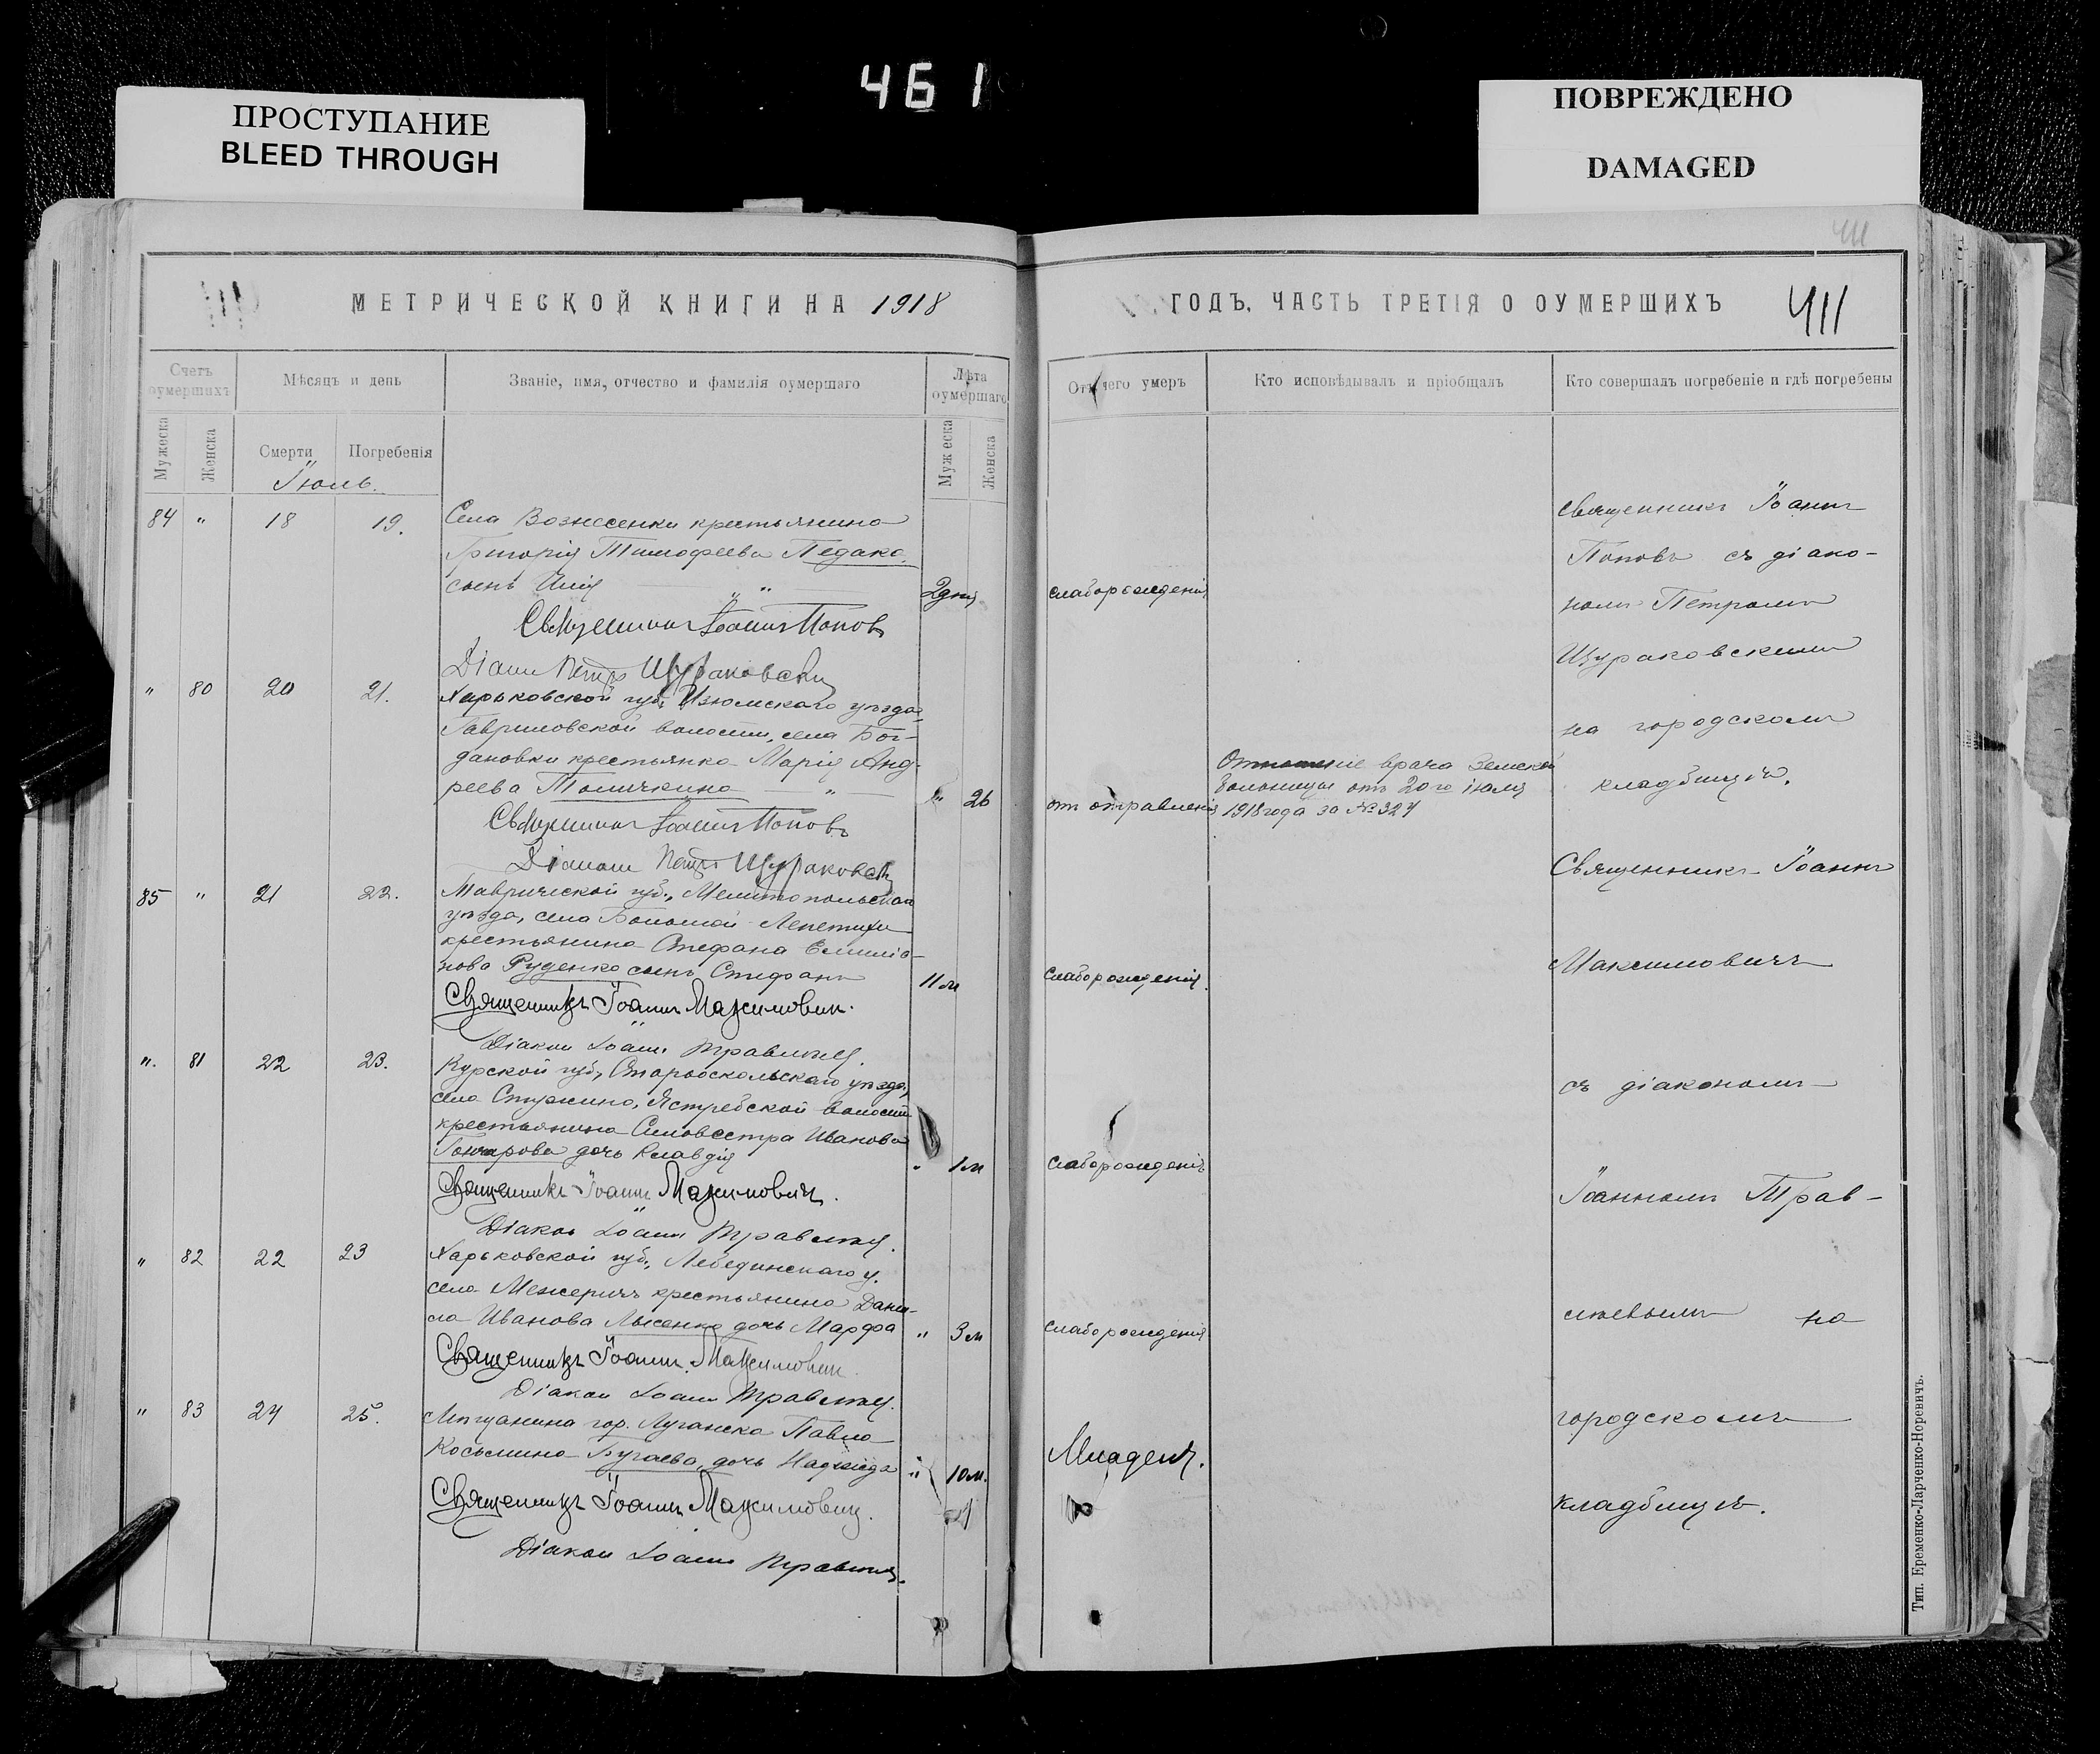 461
ПРОСТУПАНИЕ
BLEED THROUGH
ПОВРЕЖДЕНО
DAMAGED
МЕТРИЧЕСКОЙ КНИГИ НА 1918
Счетъ оумершихъ
Мѣсяцъ и день
Званіе, имя, отчество и фамилія оумершаго
Лѣта оумершаго
Мужеска
Женска
Смерти
Погребенія
Мужеска
Женска
Іюль.
84 " 18 19. Села Вознесенки крестьянина
Григорія Тимофеева Педако
сынъ Илія 2 дня
Священникъ Іоаннъ Поповъ
Діаконъ Петръ Щураковскій
" 80 20 21. Харьковской губ. Изюмскаго уѣзда,
Гавриловской волости, села Бог-
дановки крестьянка Марія Анд-
реева " 26
Священникъ Іоаннъ Поповъ
Діаконъ Петръ Щураковскій
85 " 21 22. Таврической губ., Мелитопольскаго
уѣзда, села Большой Лепетихи
крестьянина Стефана Емиліа-
нова Руденко сынъ Стефанъ 11 м
Священникъ Іоаннъ Максимовичъ.
Діаконъ Іоаннъ
". 81 22 23. Курской губ., Старооскольскаго уѣзда,
села Ястребской волости
крестьянина Силовестра Иванова
Гончарова дочь Клавдія " 1 м
Священникъ Іоаннъ Максимовичъ.
Діаконъ Іоаннъ
" 82 22 23 Харьковской губ., Лебединскаго у.
села Межеричъ крестьянина Дани-
ла Иванова Лысенко дочь Марфа " 3 м
Священникъ Іоаннъ Максимовичъ.
Діаконъ Іоаннъ
" 83 24 25. Мѣщанина гор. Луганска Павла
Косьмина Бугаева, дочь Надежда " 10 м.
Священникъ Іоаннъ Максимовичъ.
Діаконъ Іоаннъ
411
ГОДЪ, ЧАСТЬ ТРЕТІЯ О ОУМЕРШИХЪ
411
Отъ чего умеръ
Кто исповѣдывалъ и пріобщалъ
Кто совершалъ погребеніе и гдѣ погребены
слаборожденія
от отравленія
слаборожденія.
слаборожденія
слаборожденія
Младенч.
Отношеніе врача Земской
больницы отъ 20го іюля
1918 года за № 324
священникъ Іоаннъ
Поповъ съ діако-
номъ Петромъ
Щураковскимъ
на городскомъ
кладбищѣ.
Священникъ Іоаннъ
Максимовичъ
съ діакономъ
Іоанномъ Трав-
на
городскомъ
кладбищѣ.
Тип. Еременко-Ларченко-Норевичъ.